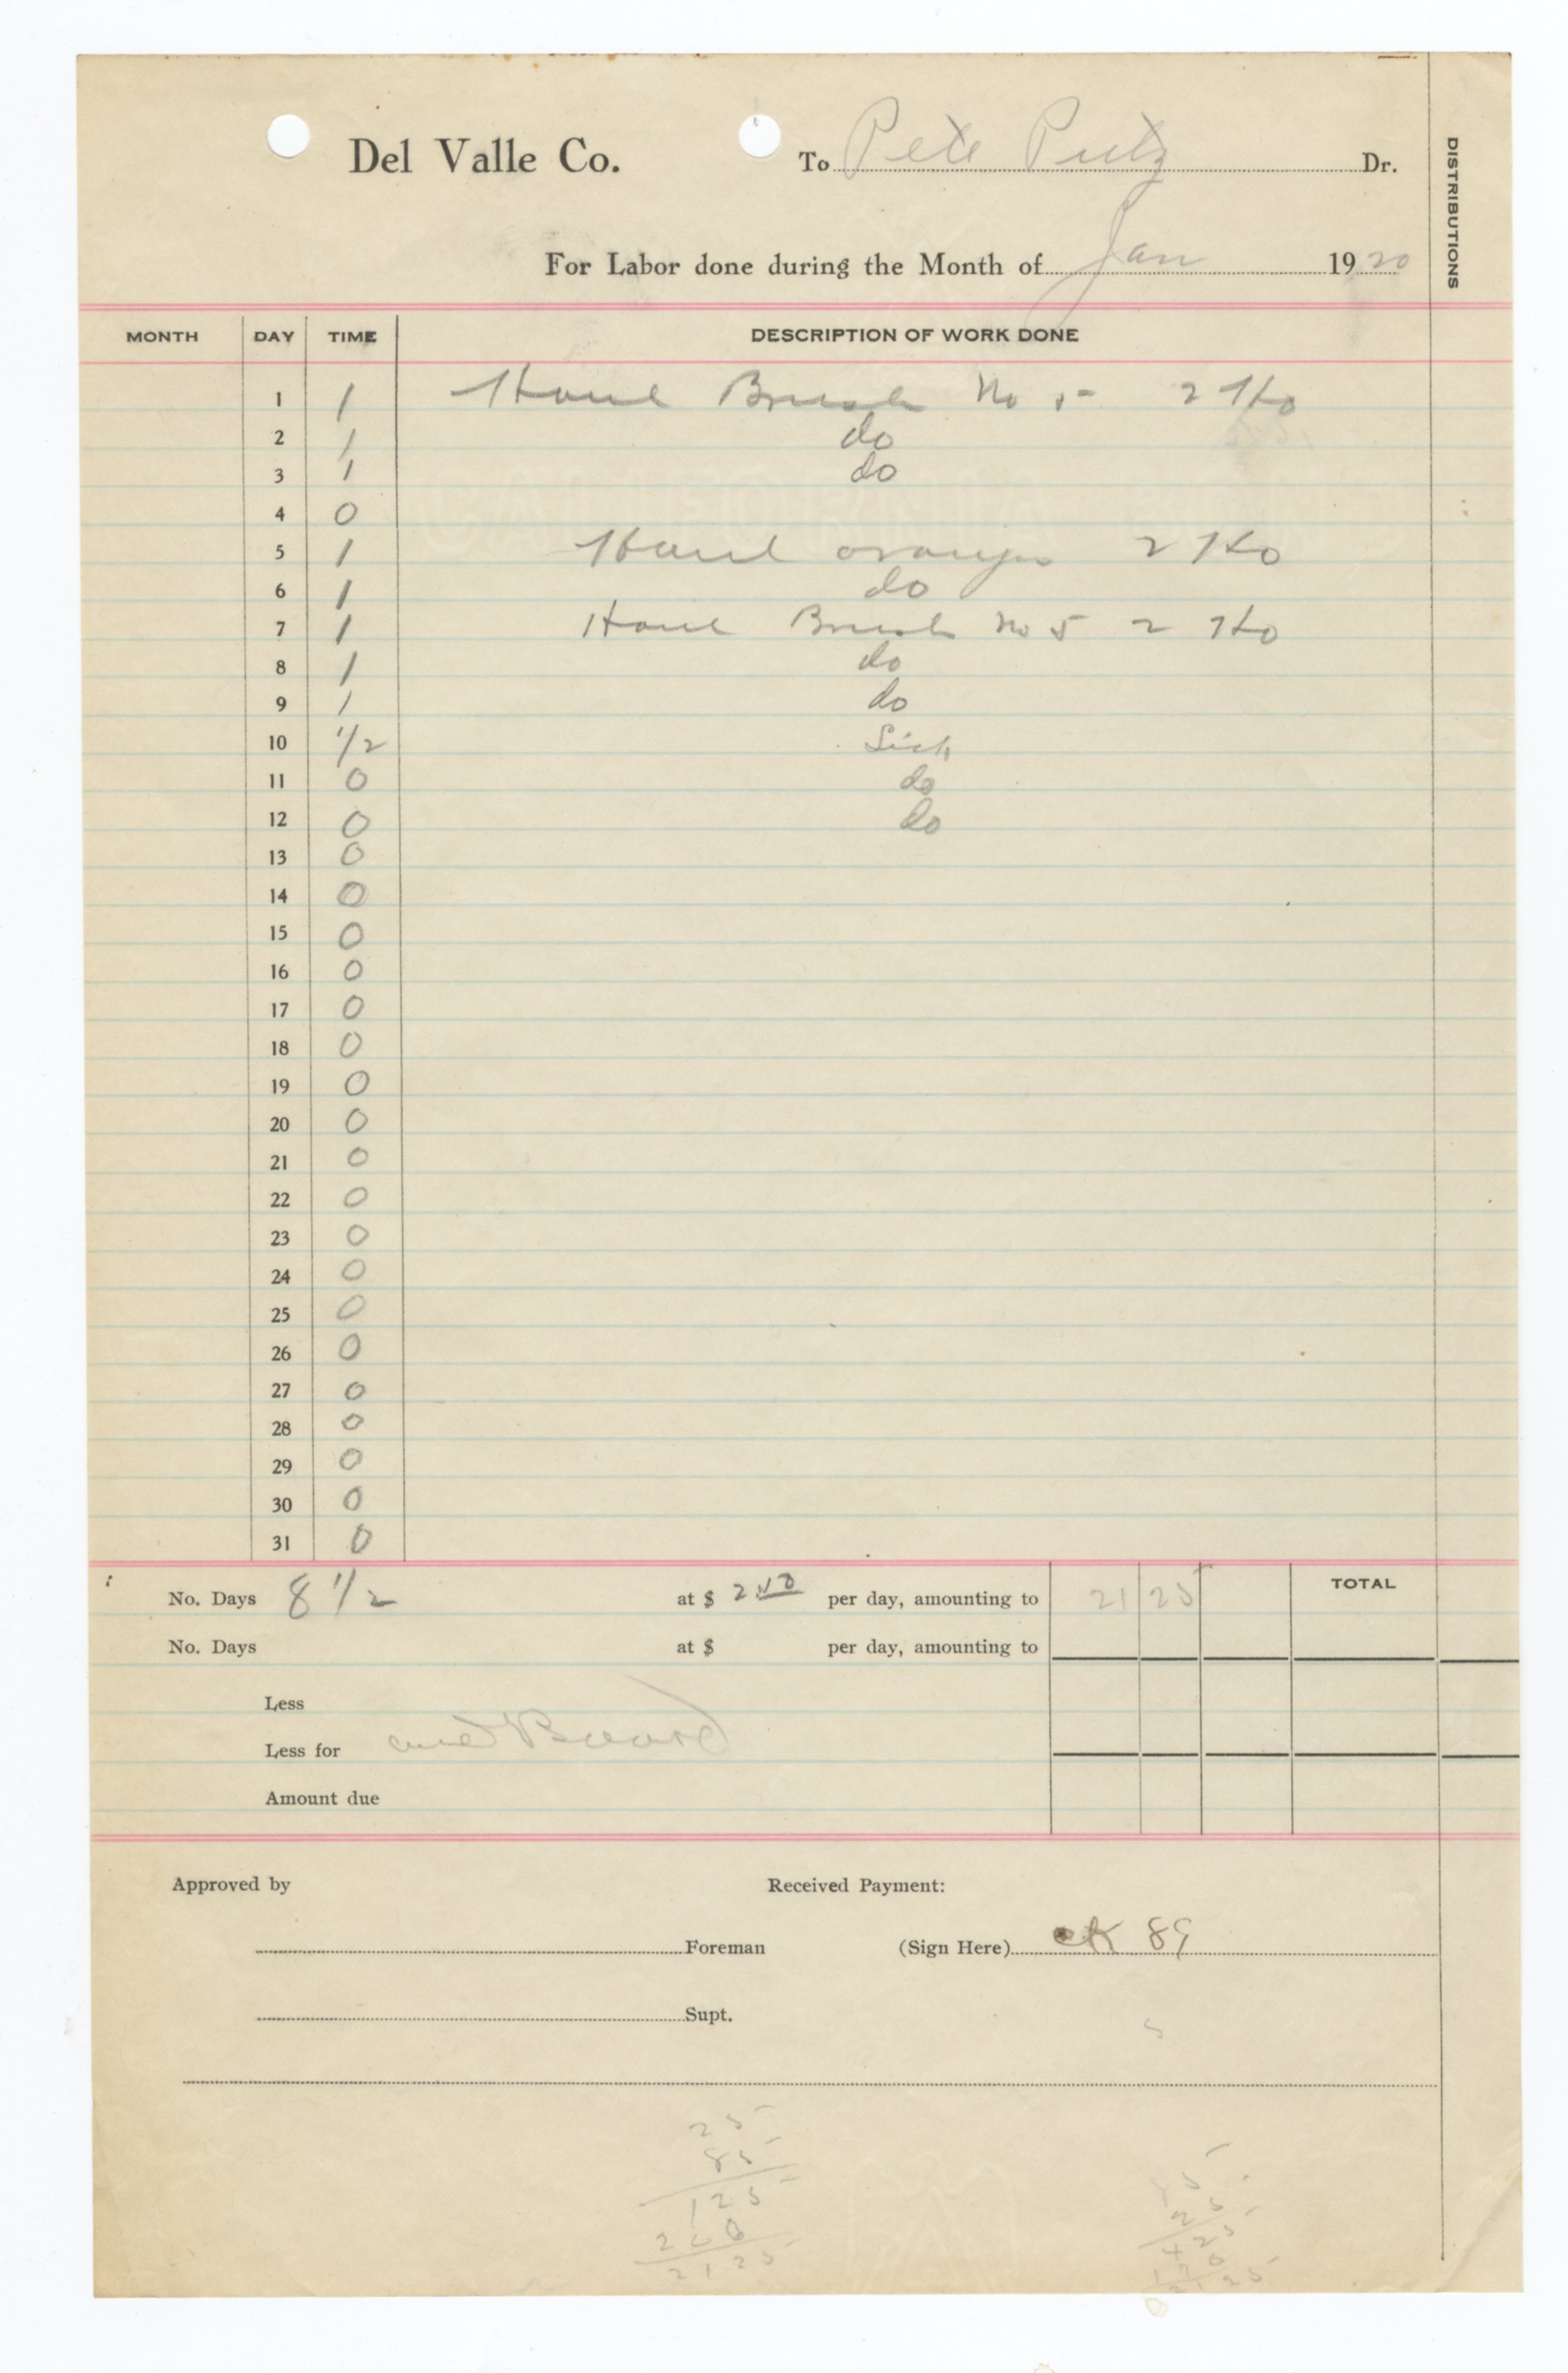 Del Valle Co. To Pete Putz Dr.
DISTRIBUTIONS
For Labor done during the Month of Jan 1920
MONTH DAY TIME DESCRIPTION OF WORK DONE
1 1 Haul Brush No 5 2 Ho
2 1 do
3 1 do
4 0
5 1 Haul oranges 2 Ho
6 1 do
7 1 Haul Brush No 5 2 Ho
8 1 do
9 1 do
10 1/2 Sick
11 0 do
12 0 do
13 0
14 0
15 0
16 0
17 0
18 0
19 0
20 0
21 0
22 0
23 0
24 0
25 0
26 0
27 0
28 0
29 0
30 0
31 0
TOTAL
No. Days 8 1/2 at $ per day, amounting to 21 25
No. Days at $ per day, amounting to
Less
Less for and Board
Amount due
Approved by Received Payment:
Foreman (Sign Here) ck 89
Supt.
25
85
125
200
2125
25
425
170
2125